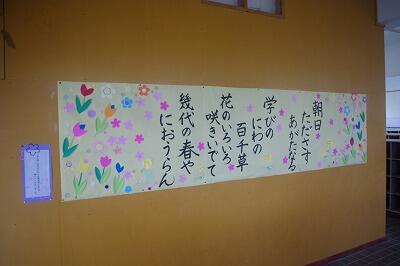 朝日
たださす
あがたなる
学びの
にわの
百千草
花のいろいろ
咲きいでて
幾代の春や
におうらん